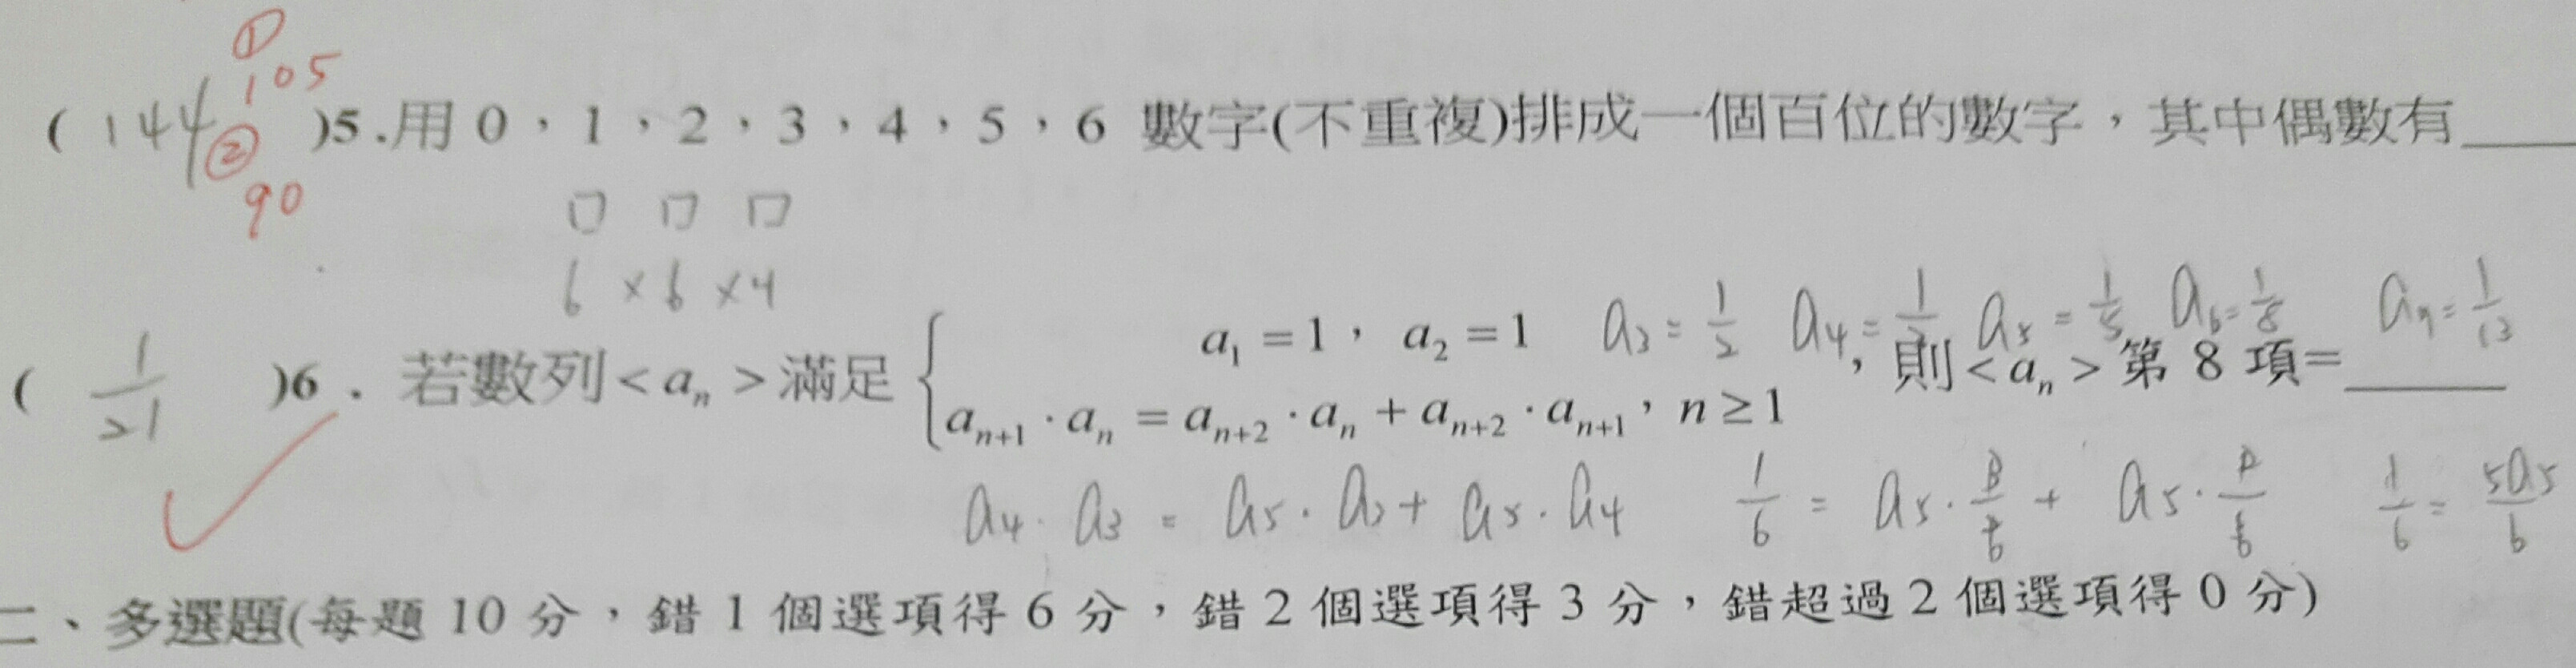 ①
105
( 144 )5.用 0，1，2，3，4，5，6 數字(不重複)排成一個百位的數字，其中偶數有____
②
90
□ □ □
6 × 6 × 4
a₁ = 1， a₂ = 1 a₃ = 1/2 a₄ = 1/3 a₅ = 1/5 a₆ = 1/8 a₇ = 1/13
( 1/21 )6．若數列<aₙ>滿足 ，則<aₙ>第 8 項=____
aₙ₊₁·aₙ = aₙ₊₂·aₙ + aₙ₊₂·aₙ₊₁，n ≥ 1
a₄·a₃ = a₅·a₃ + a₅·a₄ 1/6 = a₅· + a₅· 1/6 = 5a₅/6
二、多選題(每題 10 分，錯 1 個選項得 6 分，錯 2 個選項得 3 分，錯超過 2 個選項得 0 分)